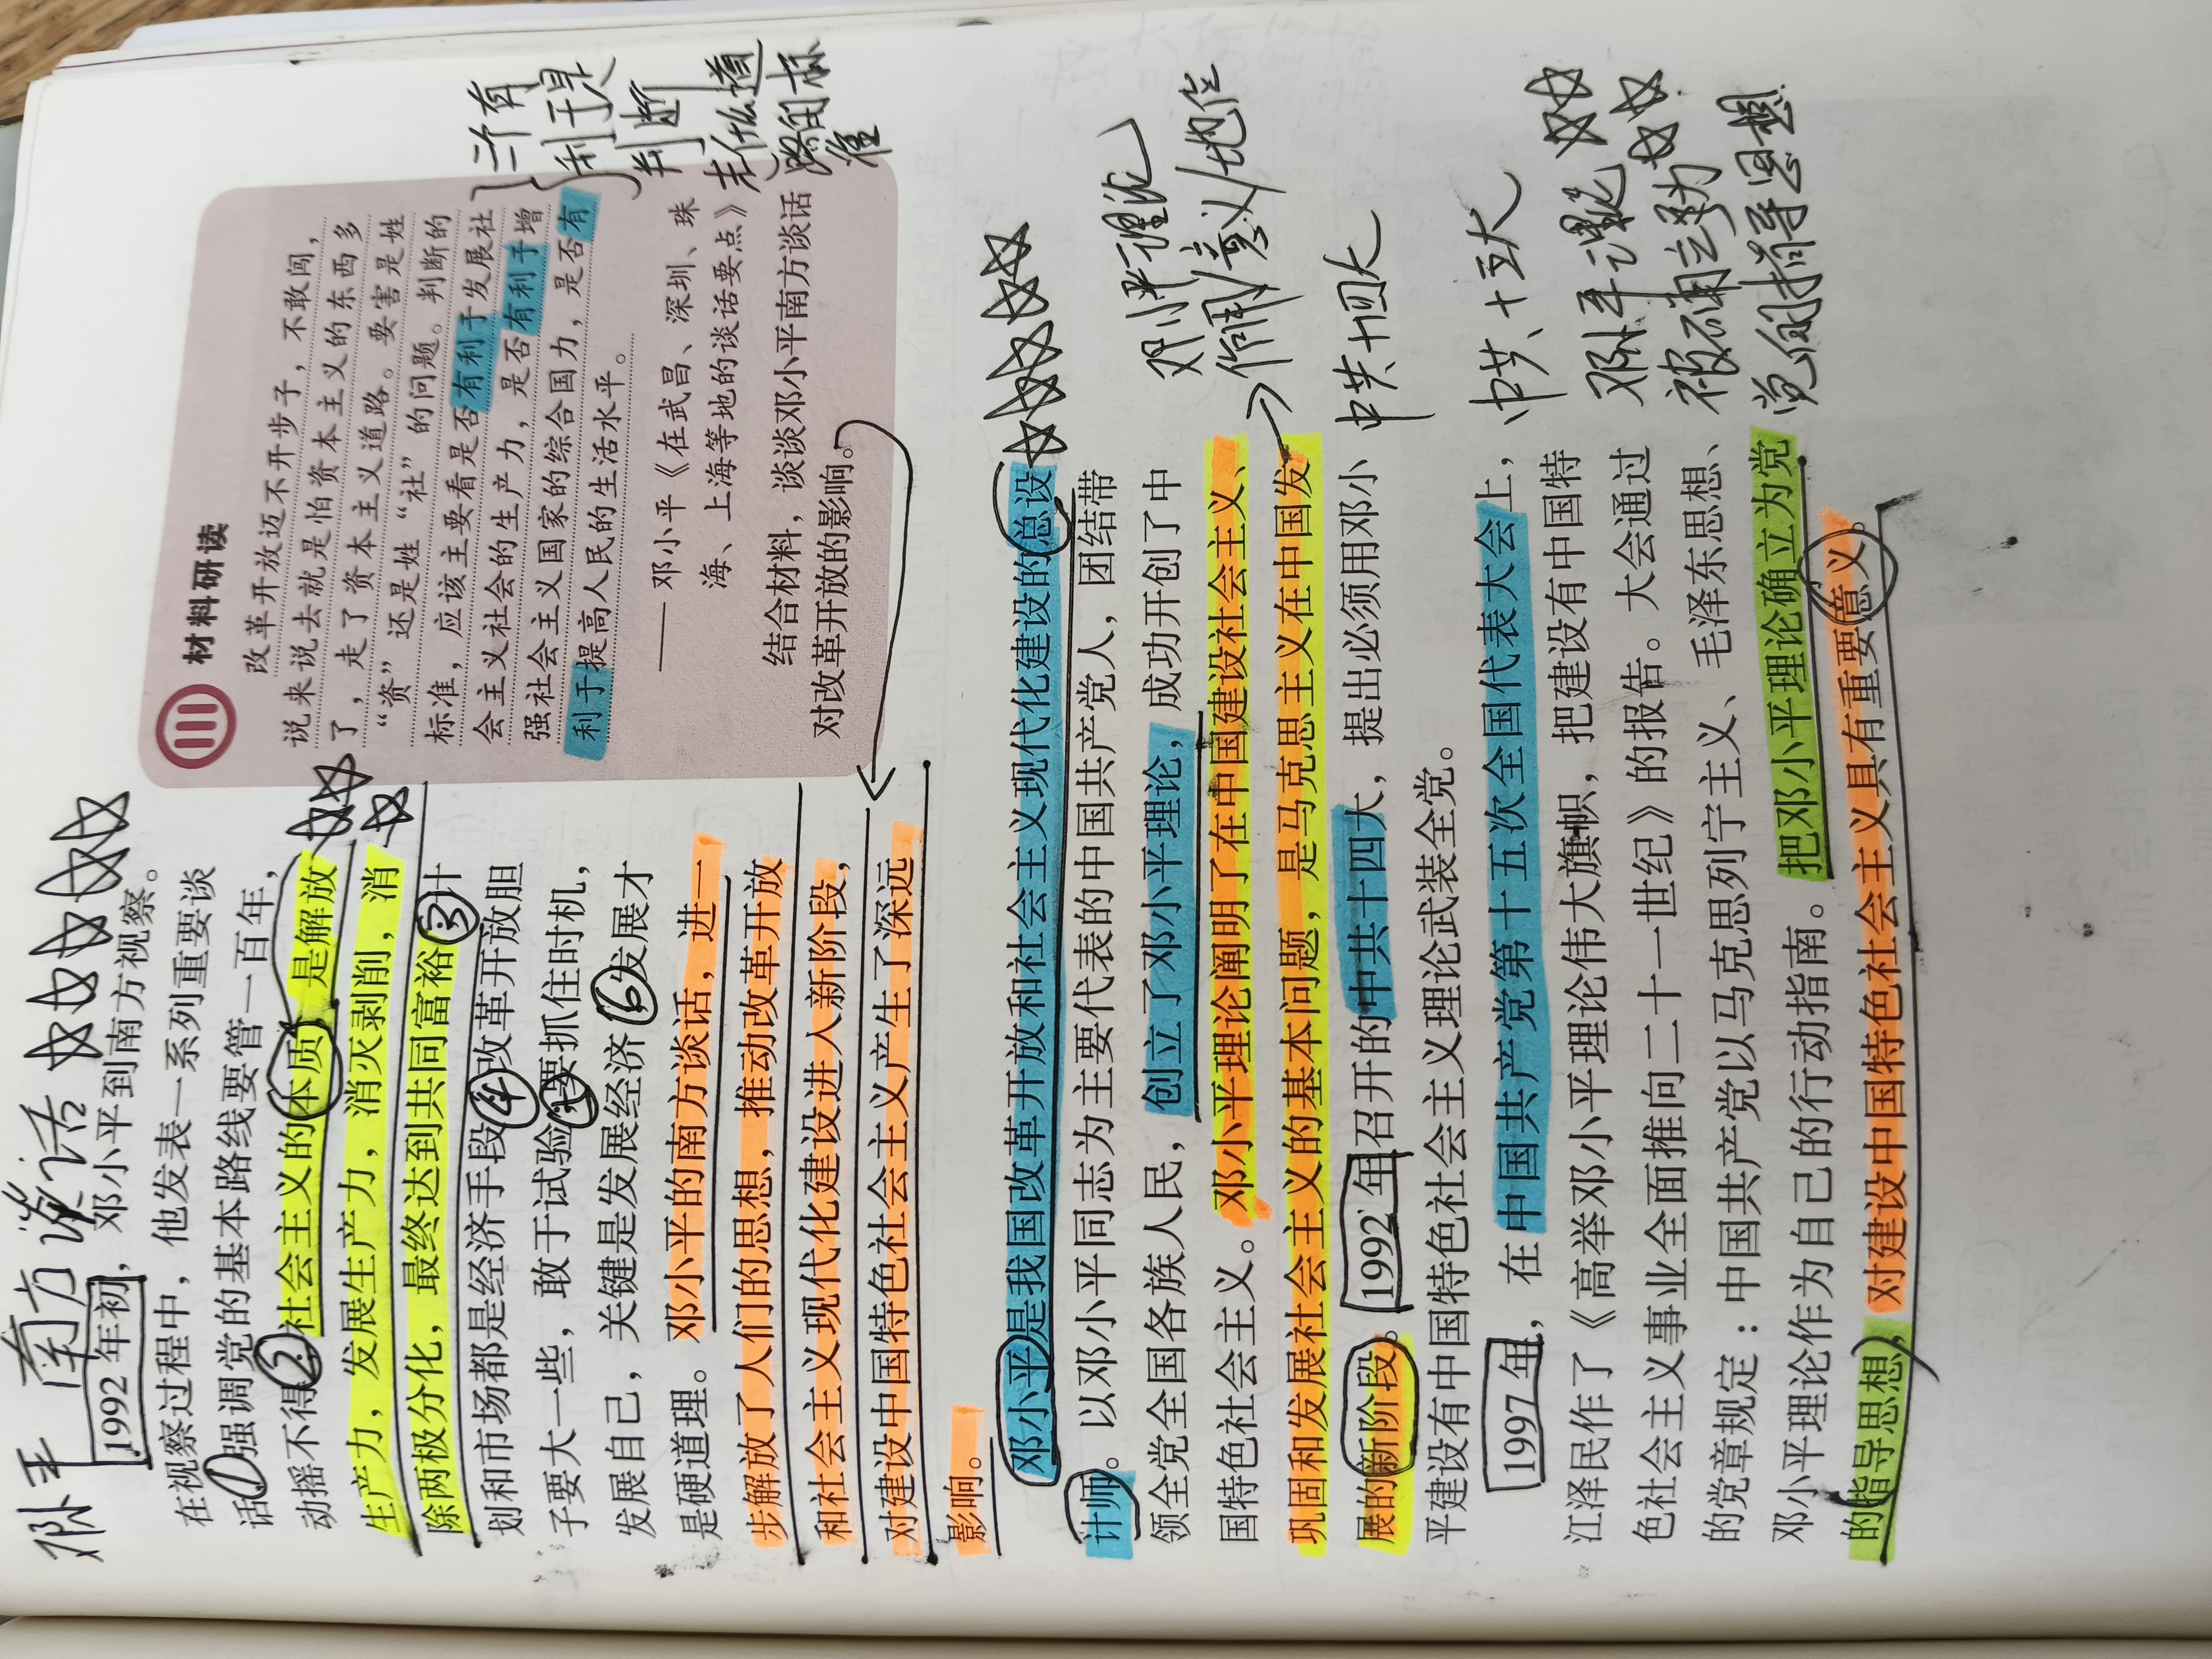 邓小平 南方谈话 ☆☆☆☆☆
1992 年初，邓小平到南方视察。
在视察过程中，他发表一系列重要谈
话①强调党的基本路线要管一百年，
动摇不得②社会主义的本质，是解放
生产力，发展生产力，消灭剥削，消
除两极分化，最终达到共同富裕③计
划和市场都是经济手段④改革开放胆
子要大一些，敢于试验⑤要抓住时机，
发展自己，关键是发展经济⑥发展才
是硬道理。邓小平的南方谈话，进一
步解放了人们的思想，推动改革开放
和社会主义现代化建设进入新阶段，
对建设中国特色社会主义产生了深远
影响。
☆☆
☆
材料研读
改革开放迈不开步子，不敢闯，
说来说去就是怕资本主义的东西多
了，走了资本主义道路。要害是姓
“资”还是姓“社”的问题。判断的
标准，应该主要看是否有利于发展社
会主义社会的生产力，是否有利于增
强社会主义国家的综合国力，是否有
利于提高人民的生活水平。
—— 邓小平《在武昌、深圳、珠
海、上海等地的谈话要点》
结合材料，谈谈邓小平南方谈话
对改革开放的影响。
三个有
利于是
判断
走什么道
路的标
准
邓小平是我国改革开放和社会主义现代化建设的总设
☆☆☆☆☆
计师。以邓小平同志为主要代表的中国共产党人，团结带
领全党全国各族人民，创立了邓小平理论，成功开创了中
国特色社会主义。邓小平理论阐明了在中国建设社会主义、
巩固和发展社会主义的基本问题，是马克思主义在中国发
展的新阶段。1992 年召开的中共十四大，提出必须用邓小
平建设有中国特色社会主义理论武装全党。
邓小平理论
作用/意义/地位
中共十四大
1997 年，在中国共产党第十五次全国代表大会上，
江泽民作了《高举邓小平理论伟大旗帜，把建设有中国特
色社会主义事业全面推向二十一世纪》的报告。大会通过
的党章规定：中国共产党以马克思列宁主义、毛泽东思想、
邓小平理论作为自己的行动指南。把邓小平理论确立为党
的指导思想，对建设中国特色社会主义具有重要意义。
中共十五大
邓小平理论 ☆☆
被确立为 ☆☆
党的指导思想